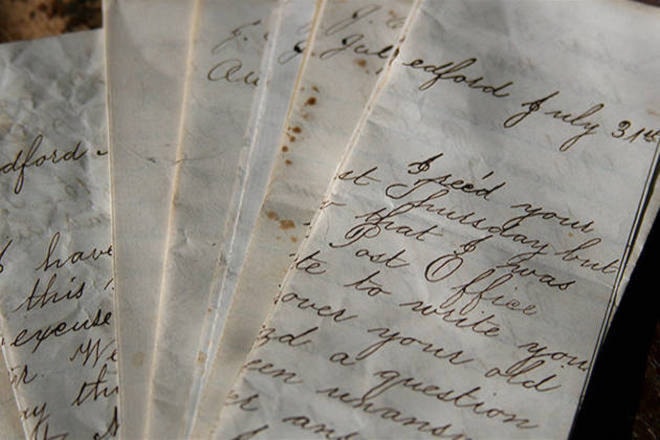 dford
I have
this
excuse
r. We
ay thi
J.
Au
J. Jul
edford July 31st
I rec'd your
st Thursday but
that I was
Post Office
te to write you
over your old
nd a question
een unansw
er an